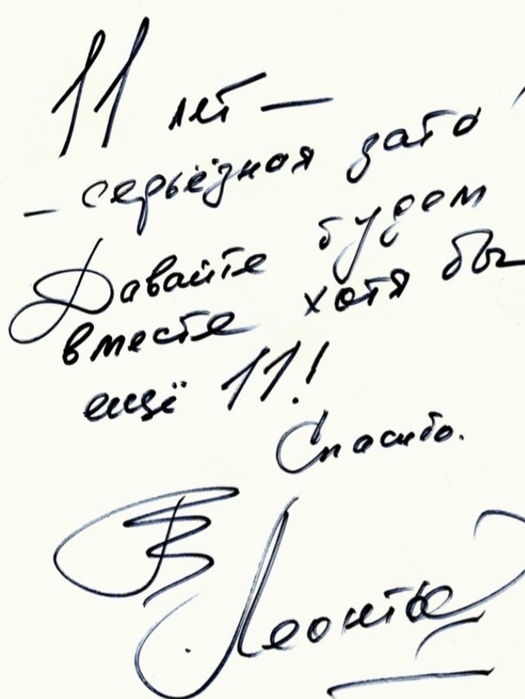 11 лет —
— серьёзная дата
Давайте будем
вместе хотя бы
ещё 11!
Спасибо.
В. Леонтье